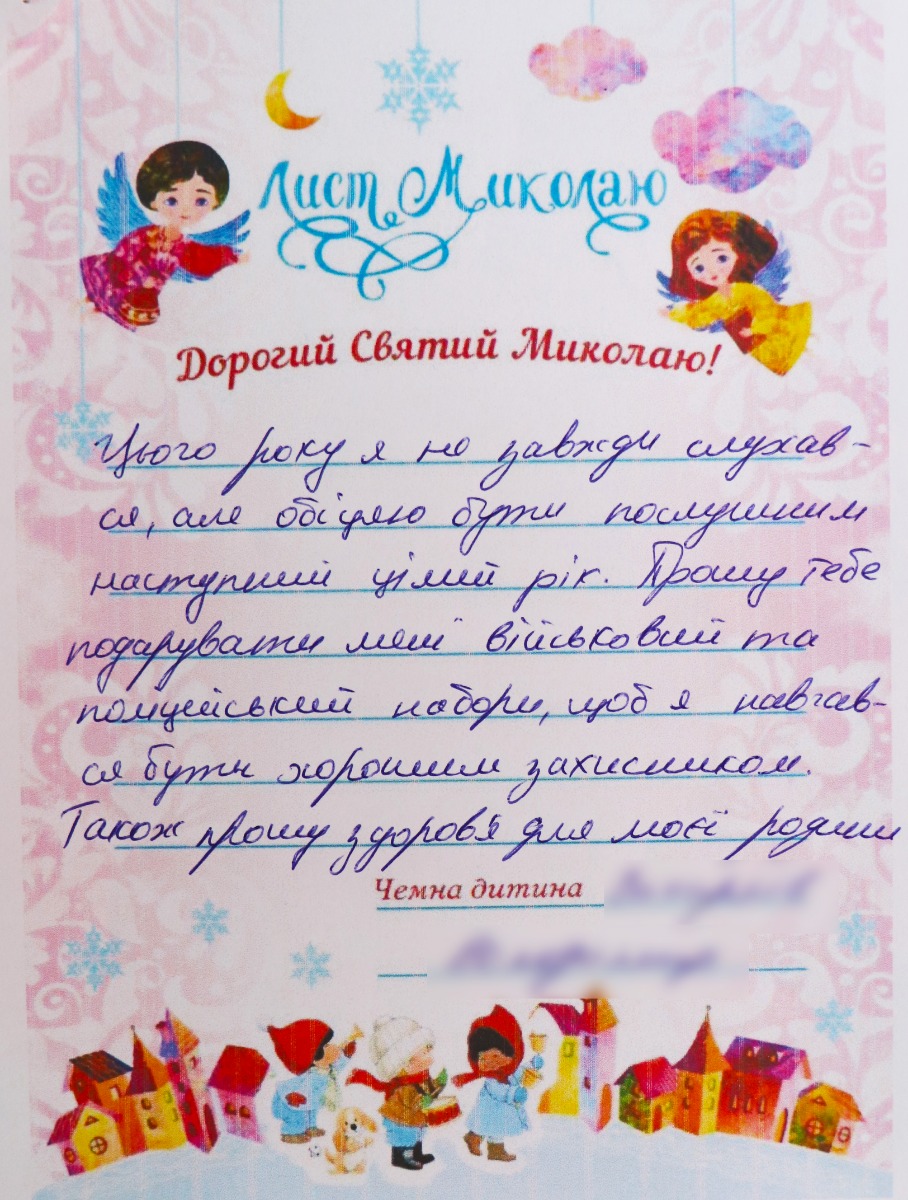 Лист Миколаю
Дорогий Святий Миколаю!
Цього року я не завжди слухав-
ся, але обіцяю бути послушним
наступний цілий рік. Прошу тебе
подарувати мені військовий та
поліцейський набори, щоб я навчав-
ся бути хорошим захисником.
Також прошу здоров'я для моєї родини
Чемна дитина